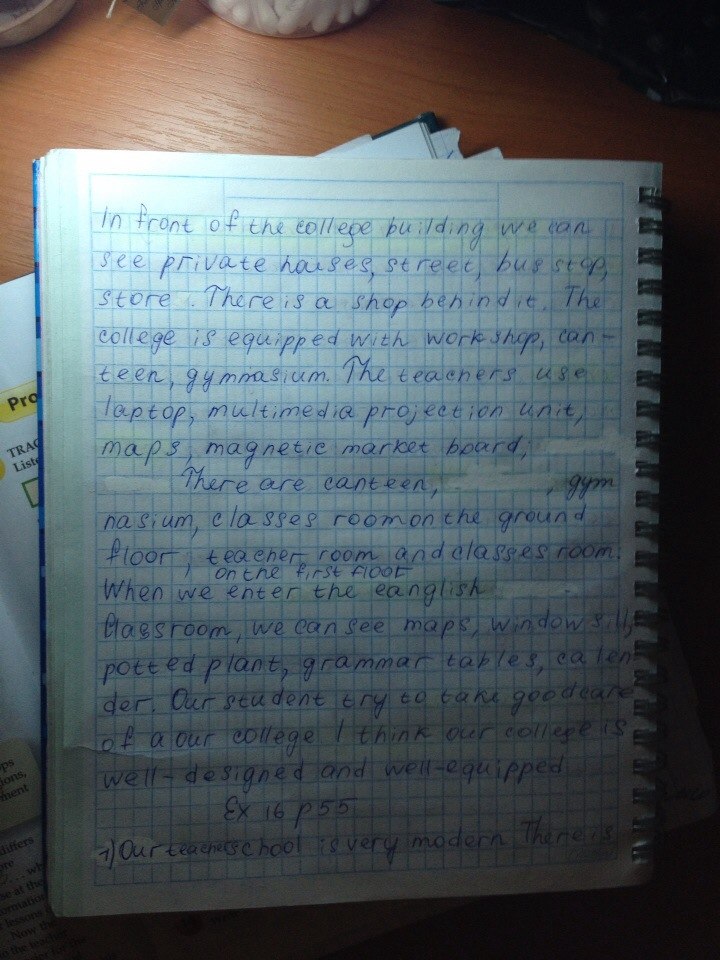 In front of the college building we can
see private houses, street, bus stop,
store. There is a shop behind it. The
college is equipped with workshop, can-
teen, gymnasium. The teachers use
laptop, multimedia projection unit,
maps, magnetic market board,
There are canteen, , gym
nasium, classes room on the ground
floor, teacher room and classes room.
on the first floor
When we enter the eanglish
Classroom, we can see maps, window sill,
potted plant, grammar tables, calen
der. Our student try to take good care
of a our college I think our college is
well-designed and well-equipped
Ex 16 p 55
1) Our school is very modern There is
Pro
TRAC
Liste
ps
ions,
ment
differs